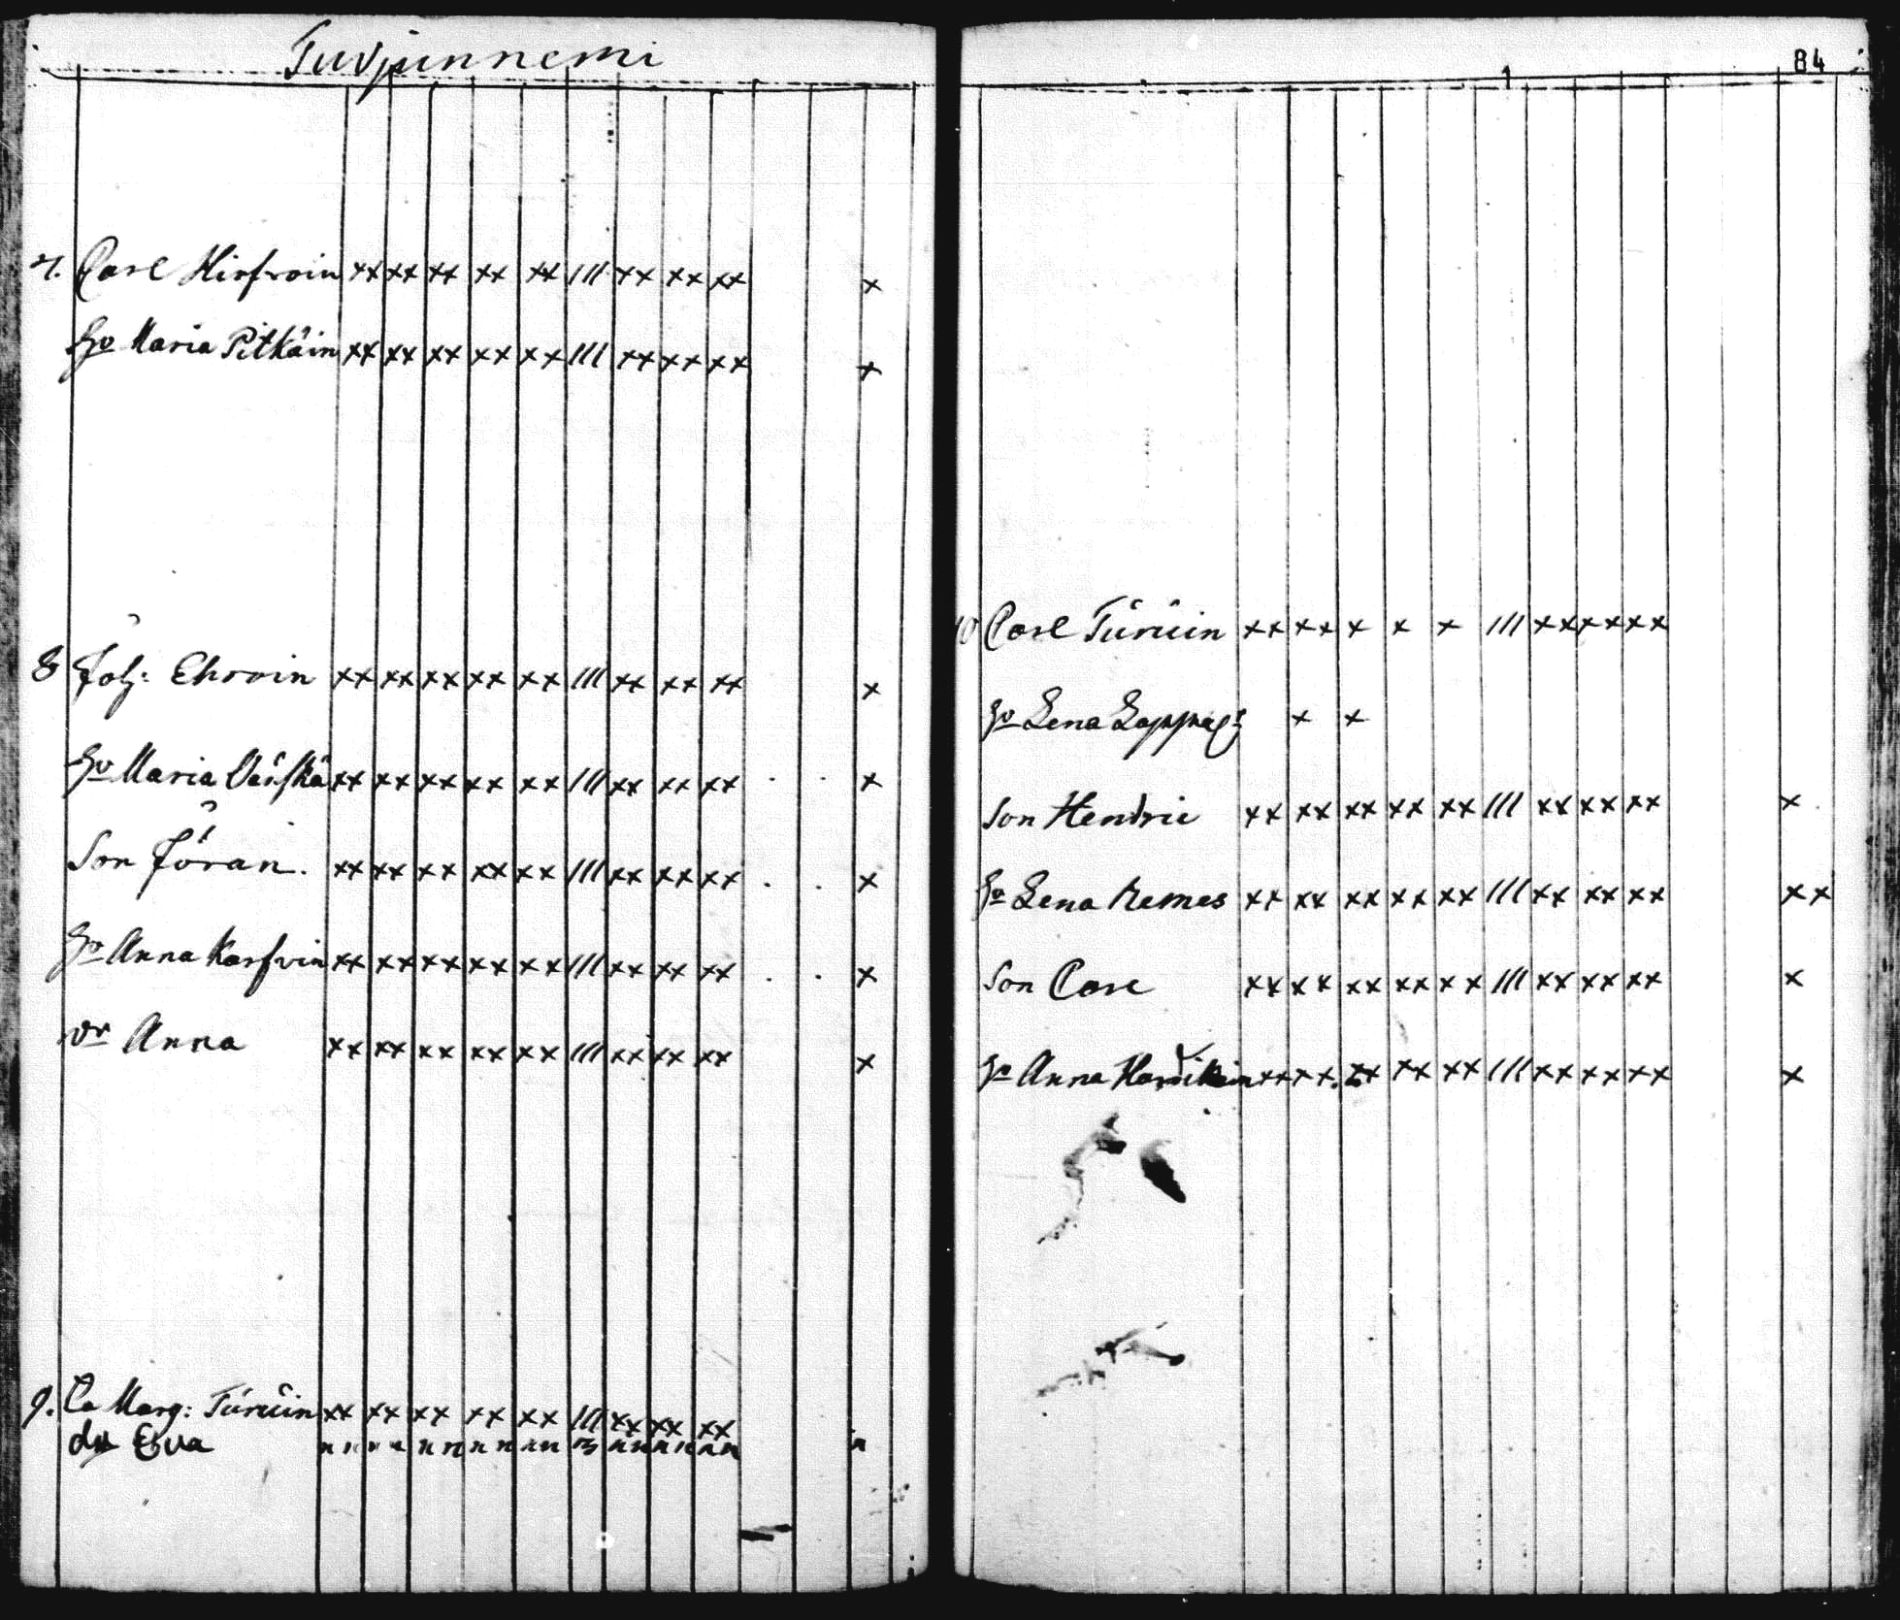 Tuvjunnemi
84
7. Carl Hirfvoin xx xx xx xx xx III xx xx xx x
Ho Maria Pitkäin xx xx xx xx xx III xx xx xx x
8 Joh: Ehrvoin xx xx xx xx xx III xx xx xx x
Ho Maria Vänskä xx xx xx xx xx III xx xx xx . . x
Son Jöran. xx xx xx xx xx III xx xx xx . . x
Ho Anna Karfvin xx xx xx xx xx III xx xx xx . . x
Dr Anna xx xx xx xx xx III xx xx xx x
9. Marg: Turuin xx xx xx xx xx III xx xx xx
dr Eva
10 Carl Turuin xx xx x x x III xx xx xx
Ho Lena x x
Son Hendric xx xx xx xx xx III xx xx xx x
Ho Lena Remes xx xx xx xx xx III xx xx xx xx
Son Carl xx xx xx xx xx III xx xx xx x
Ho Anna xx xx xx xx xx III xx xx xx x